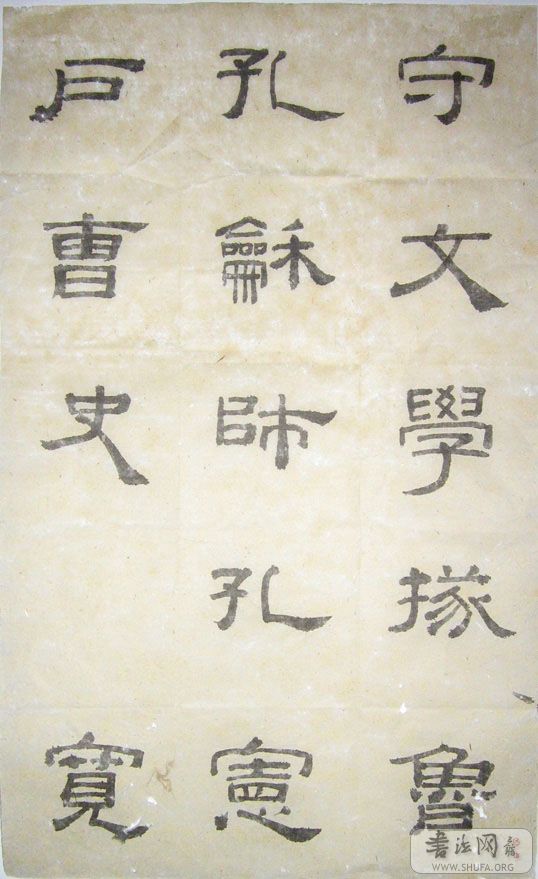 守文學掾魯
孔龢師孔憲
戶曹史寬
书法网
WWW.SHUFA.ORG